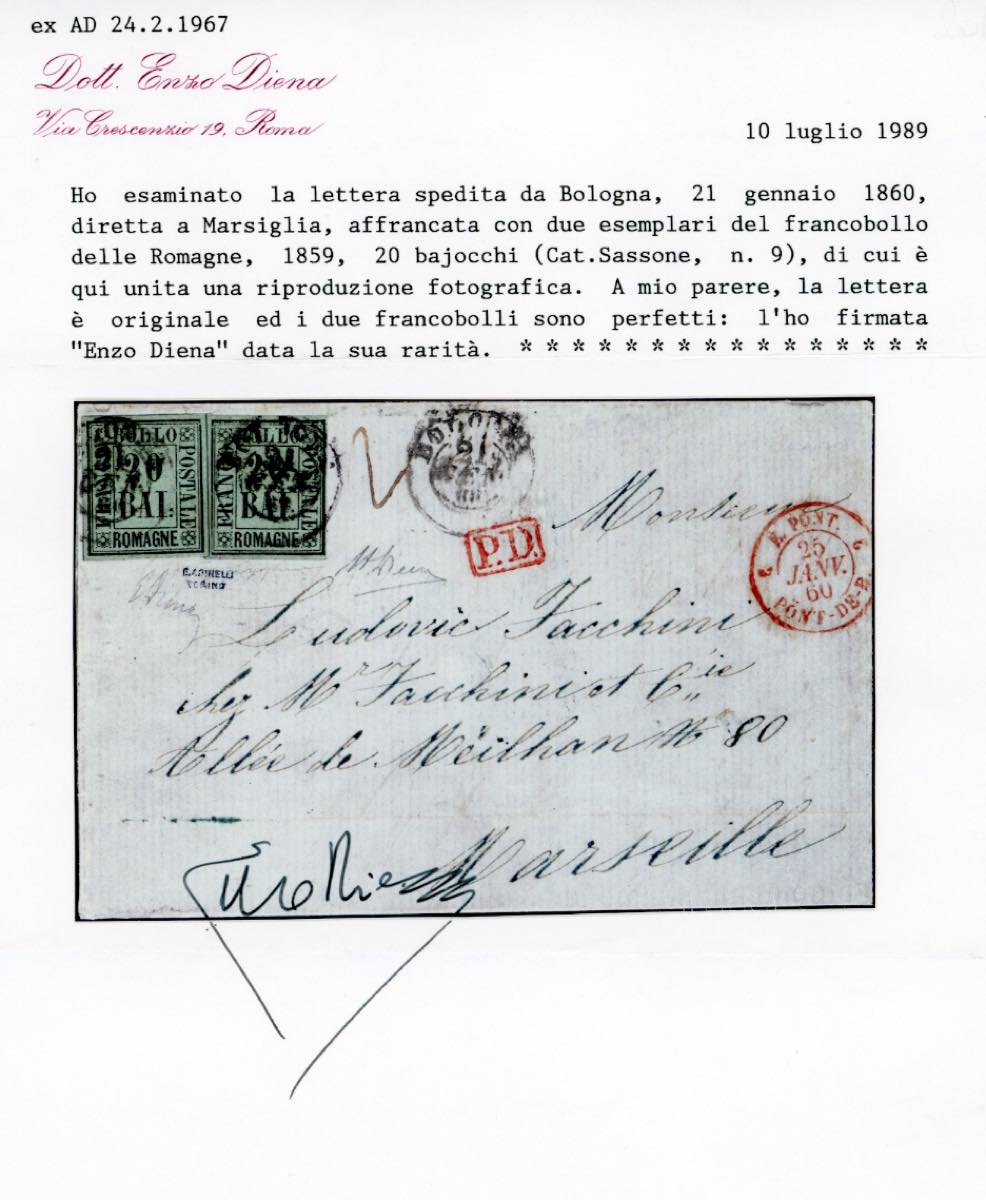 ex AD 24.2.1967
Dott. Enzo Diena
Via Crescenzio 19, Roma
10 luglio 1989
Ho esaminato la lettera spedita da Bologna, 21 gennaio 1860,
diretta a Marsiglia, affrancata con due esemplari del francobollo
delle Romagne, 1859, 20 bajocchi (Cat.Sassone, n. 9), di cui è
qui unita una riproduzione fotografica. A mio parere, la lettera
è originale ed i due francobolli sono perfetti: l'ho firmata
"Enzo Diena" data la sua rarità. * * * * * * * * * * * * * * * *
BOLLO
POSTALE
FRANCO
20
BAI.
ROMAGNE
BOLLO
POSTALE
FRANCO
BAI.
ROMAGNE
BOLOGNA
21
P.D.
E. PONT.
25
JANV.
60
PONT-DE-B.
TORINO
Monsieur
Ludovic Facchini
chez Mr Facchini et Cie
Allée de Meilhan No 80
Marseille